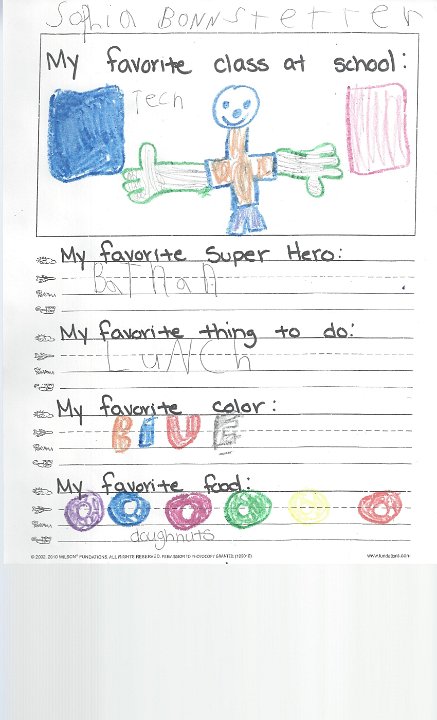 Sophia BONNStetter
My favorite class at school:
Tech
My favorite Super Hero:
BaTnan
My favorite thing to do:
LuNCh
My favorite color:
BlUE
My favorite food:
doughnuts
© 2002, 2010 WILSON® FUNDATIONS. ALL RIGHTS RESERVED. PERMISSION TO PHOTOCOPY GRANTED. www.fundations.com